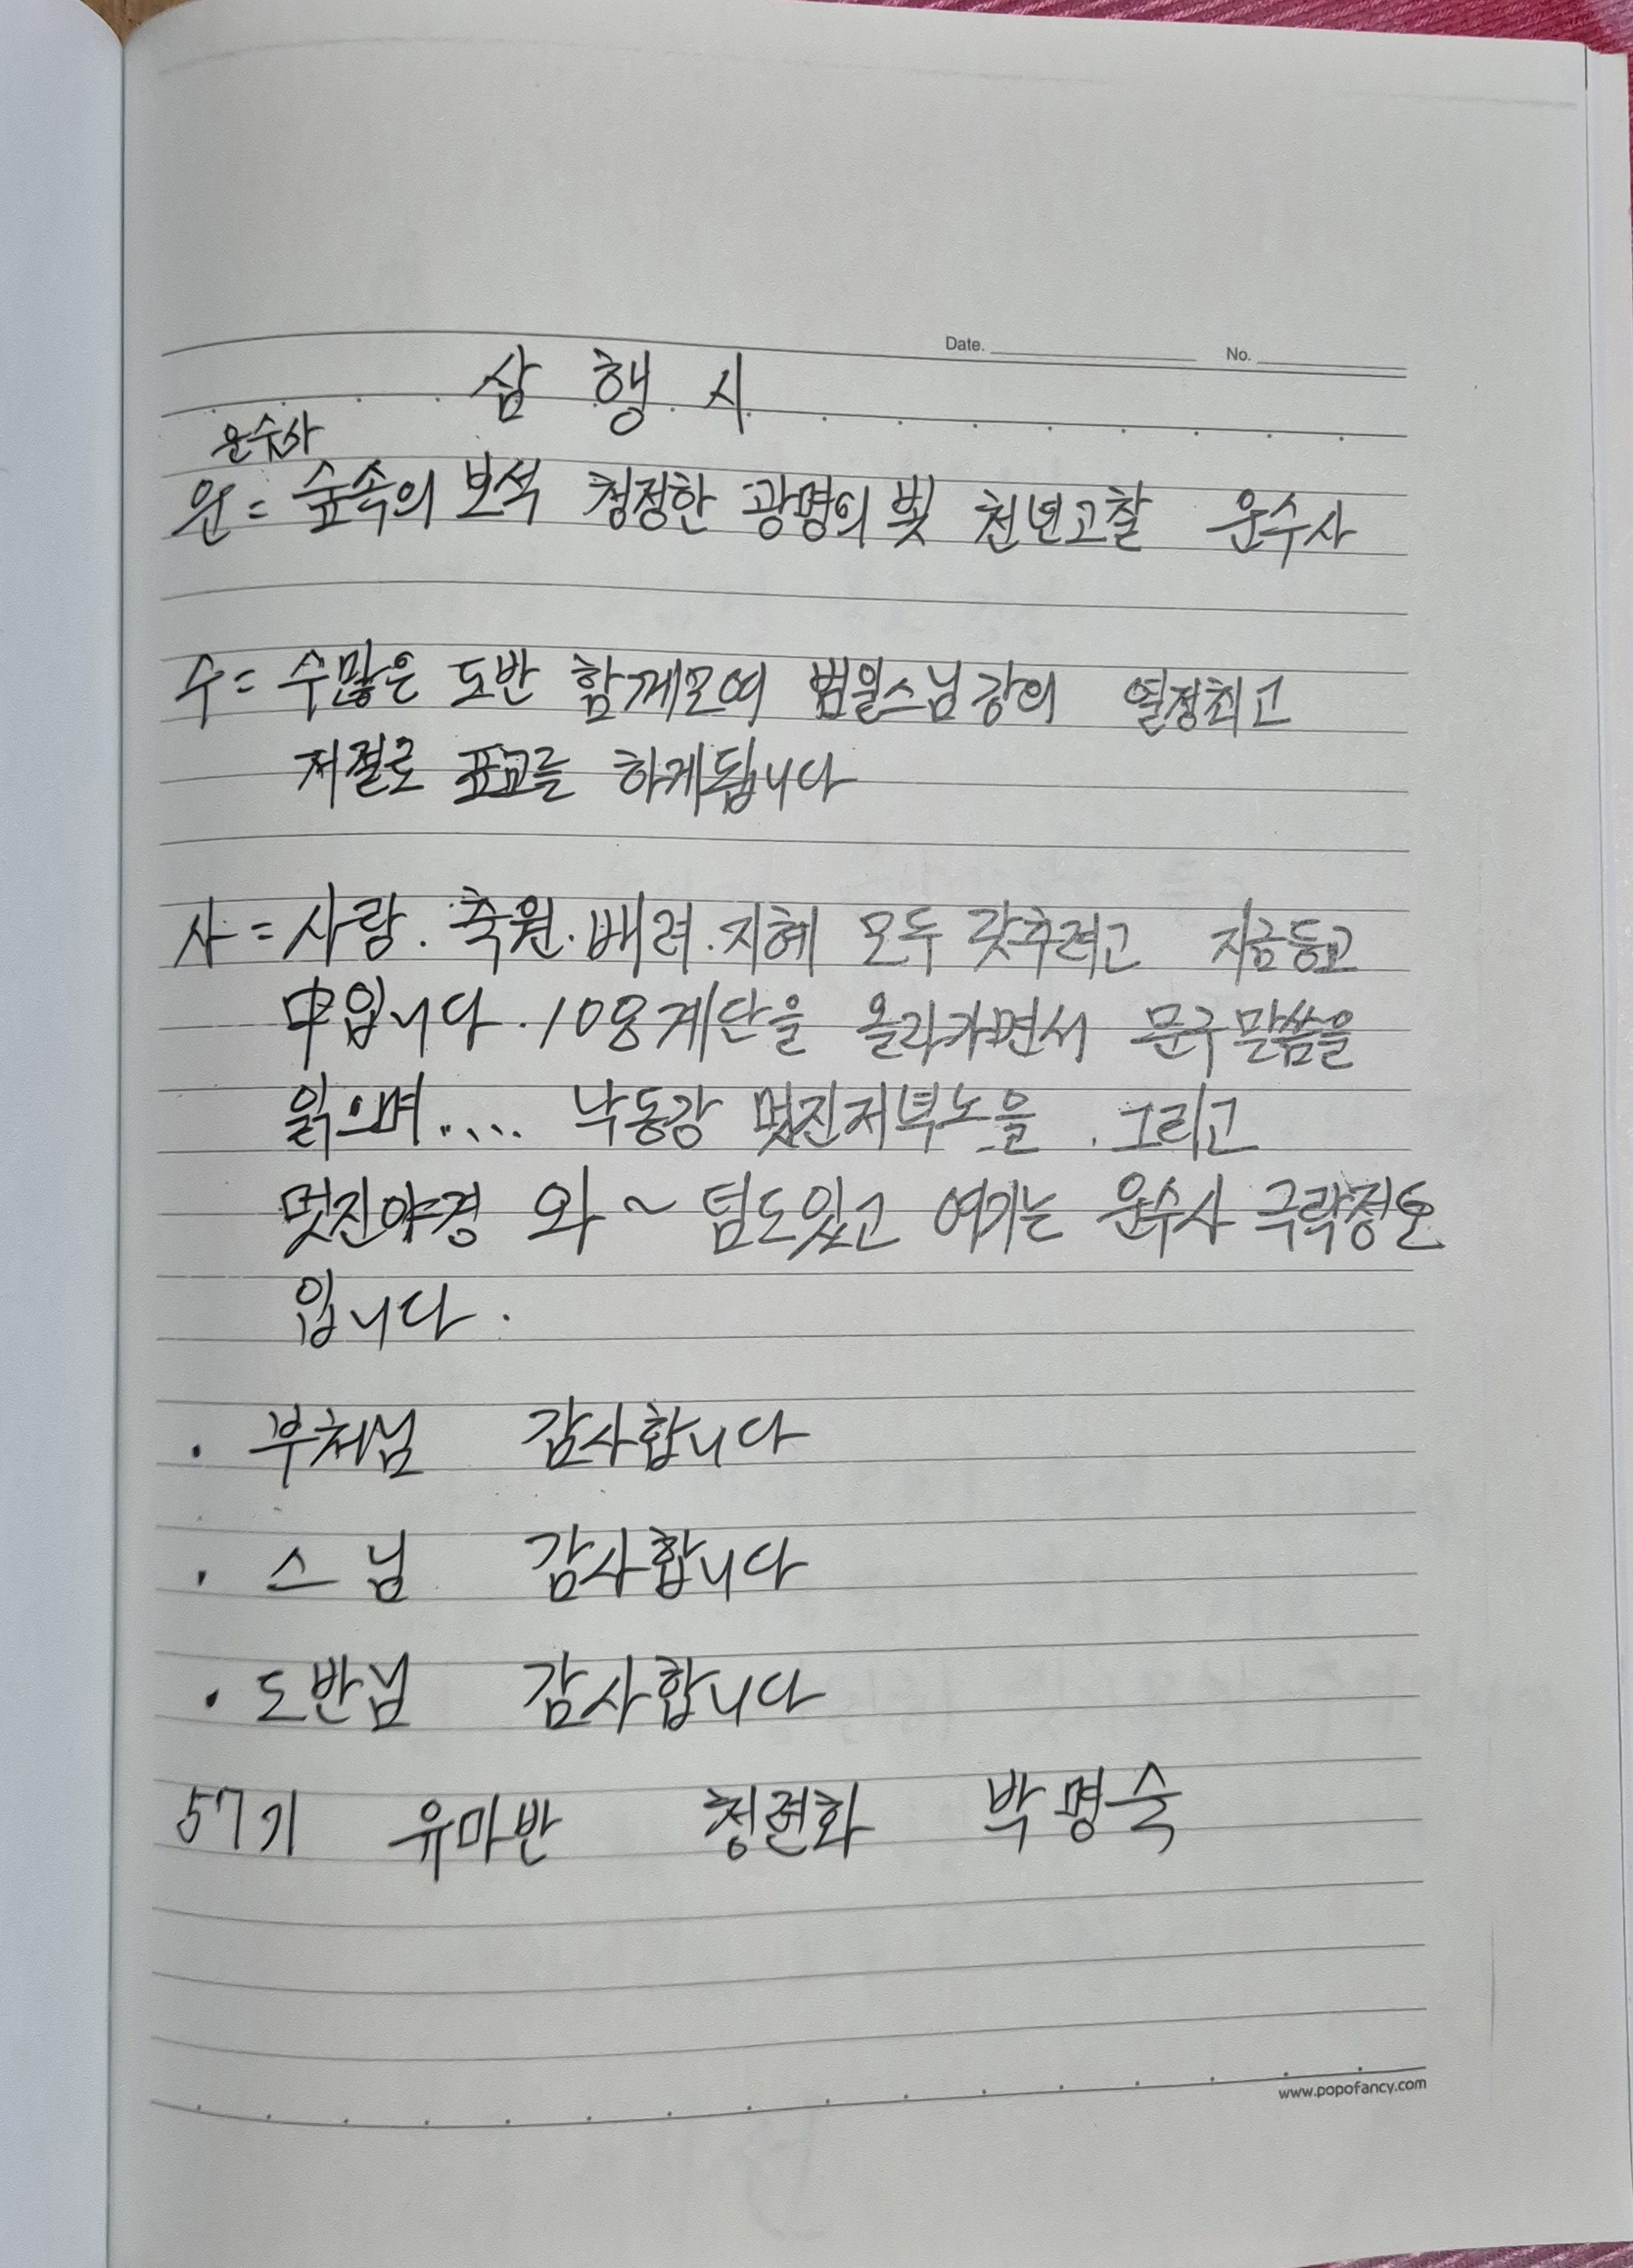 Date. No.
삼 행 시
운수사
운 = 숲속의 보석 청정한 광명의 빛 천년고찰 운수사
수 = 수많은 도반 함께모여 범일스님강의 열정최고
저절로 포교를 하게됩니다
사 = 사랑. 축원. 배려. 지혜 모두 갖추려고 지금등고
中입니다. 108계단을 올라가면서 문구말씀을
읽으며.... 낙동강 멋진저녁노을 . 그리고
멋진야경 와~ 덤도있고 여기는 운수사 극락정토
입니다.
· 부처님 감사합니다
· 스 님 감사합니다
· 도반님 감사합니다
57기 유마반 청련화 박명숙
www.popofancy.com